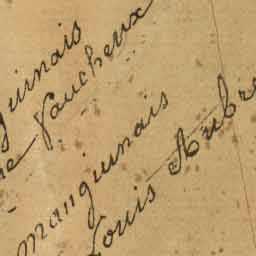 guinais
Vaucheux
Manguinais
Louis Aubre